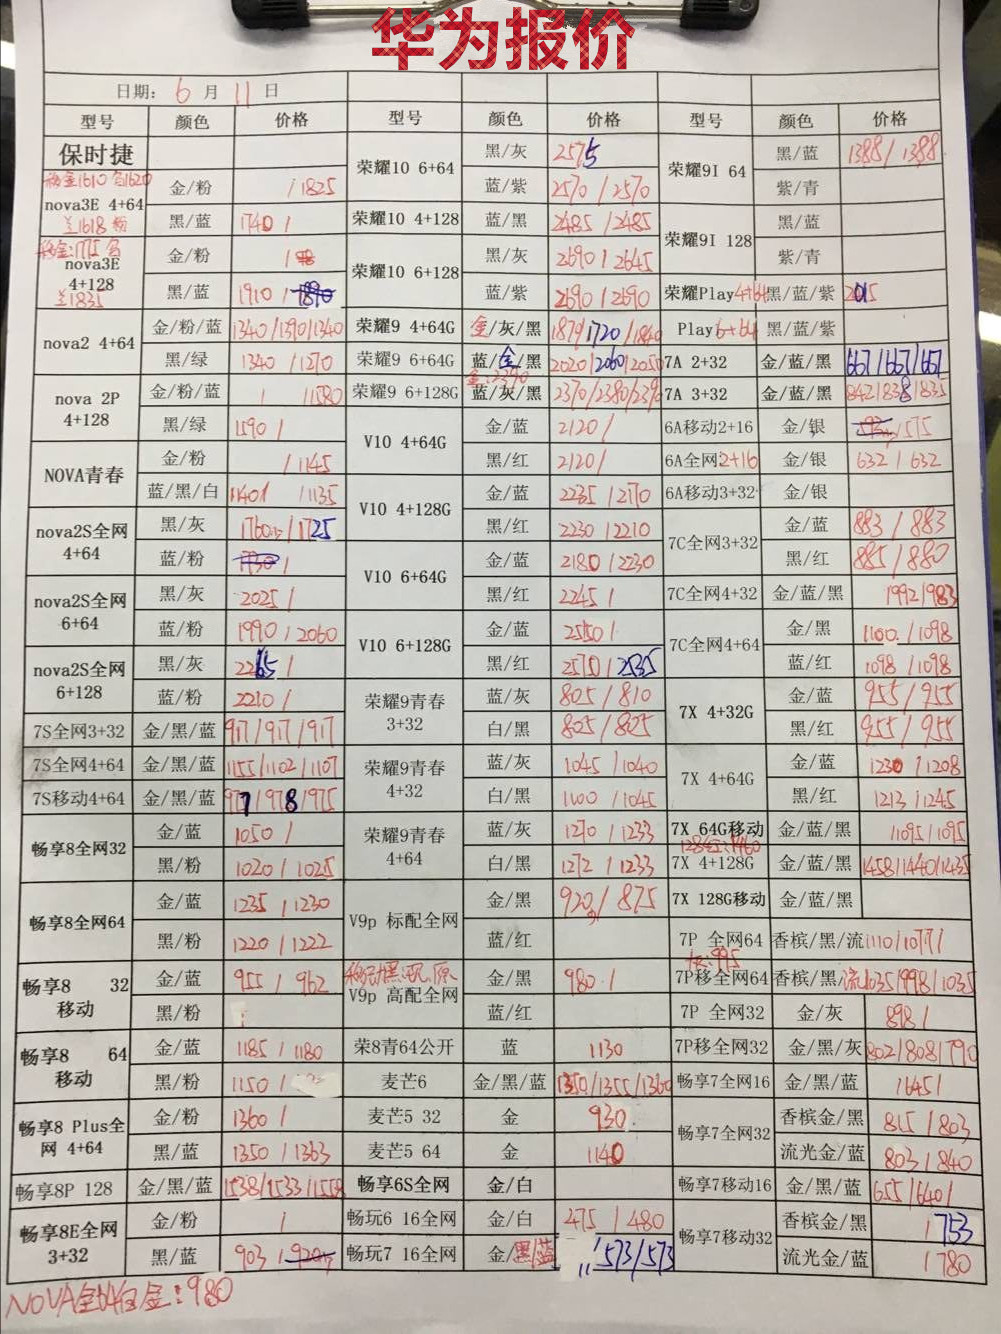 华为报价
日期: 6 月 11 日
型号 颜色 价格 型号 颜色 价格 型号 颜色 价格
保时捷 荣耀10 6+64 黑/灰 2575 荣耀9I 64 黑/蓝 1388 / 1388
移金1610 白1620
nova3E 4+64 金/粉 / 1825 蓝/紫 2570 / 2570 紫/青
兰1618 粉
黑/蓝 1740 / 荣耀10 4+128 蓝/黑 2485 / 2485 荣耀9I 128 黑/蓝
nova3E 4+128 金/粉 / 荣耀10 6+128 黑/灰 2690 / 2645 紫/青
兰1835
黑/蓝 1910 / 蓝/紫 2690 / 2690 荣耀Play4+64 黑/蓝/紫 2015
nova2 4+64 金/粉/蓝 1340 /1390/1340 荣耀9 4+64G 金/灰/黑 1879/1720/1840 Play6+64 黑/蓝/紫
黑/绿 1340 /1270 荣耀9 6+64G 蓝/金/黑 2020/2060/2050 7A 2+32 金/蓝/黑 667/667/667
nova 2P 4+128 金/粉/蓝 / 荣耀9 6+128G 蓝/灰/黑 2370/2380/ 7A 3+32 金/蓝/黑 842/838/835
黑/绿 1590 / V10 4+64G 金/蓝 2120 / 6A移动2+16 金/银 1575
NOVA青春 金/粉 / 1145 黑/红 2120 / 6A全网2+16 金/银 632 / 632
蓝/黑/白 1140 / /1135 V10 4+128G 金/蓝 2235 /2170 6A移动3+32 金/银
nova2S全网 4+64 黑/灰 1760 /1725 黑/红 2230 /2210 7C全网3+32 金/蓝 883 / 883
蓝/粉 / V10 6+64G 金/蓝 2180 /2230 黑/红 885 / 880
nova2S全网 6+64 黑/灰 2025 / 黑/红 2245 / 7C全网4+32 金/蓝/黑 1992/983
蓝/粉 1990 / 2060 V10 6+128G 金/蓝 2550 / 7C全网4+64 金/黑 1100 / 1098
nova2S全网 6+128 黑/灰 2265 / 黑/红 2570 / 2535 蓝/红 1098 / 1098
蓝/粉 2210 / 荣耀9青春 3+32 蓝/灰 805 / 810 7X 4+32G 金/蓝 955 / 955
7S全网3+32 金/黑/蓝 917/917/917 白/黑 805 / 805 黑/红 955 / 955
7S全网4+64 金/黑/蓝 1155/1102/1107 荣耀9青春 4+32 蓝/灰 1045 /1040 7X 4+64G 金/蓝 1230 /1208
7S移动4+64 金/黑/蓝 977/978/975 白/黑 1100 /1045 黑/红 1213 /1245
畅享8全网32 金/蓝 1050 / 荣耀9青春 4+64 蓝/灰 1270 / 1233 7X 64G移动 金/蓝/黑 1095/1095
黑/粉 1020 / 1025 白/黑 1272 / 1233 7X 4+128G 金/蓝/黑 1458/1440/1435
畅享8全网64 金/蓝 1235 / 1230 V9p 标配全网 金/黑 920 / 875 7X 128G移动 金/蓝/黑
黑/粉 1220 / 1222 蓝/红 7P 全网64 香槟/黑/流 1110/1077/
畅享8 32 移动 金/蓝 955 / 962 V9p 高配全网 金/黑 980 / 7P移全网64 香槟/黑/流 1035/998/1035
黑/粉 蓝/红 7P 全网32 金/灰 898 /
畅享8 64 移动 金/蓝 1185 / 1180 荣8青64公开 蓝 1130 7P移全网32 金/黑/灰 802/808/790
黑/粉 1150 / 麦芒6 金/黑/蓝 1350/1355/1360 畅享7全网16 金/黑/蓝 /645/
畅享8 Plus全网 4+64 金/粉 1360 / 麦芒5 32 金 930 畅享7全网32 香槟金/黑 815 / 803
黑/蓝 1350 / 1363 麦芒5 64 金 1140 流光金/蓝 803 / 840
畅享8P 128 金/黑/蓝 1538/1533/1558 畅享6S全网 金/白 畅享7移动16 金/黑/蓝 655/640/
畅享8E全网 3+32 金/粉 / 畅玩6 16全网 金/白 475 / 480 畅享7移动32 香槟金/黑 / 753
黑/蓝 903 / 畅玩7 16全网 金/黑蓝 573/573 流光金/蓝 / 780
NOVA全 金:980